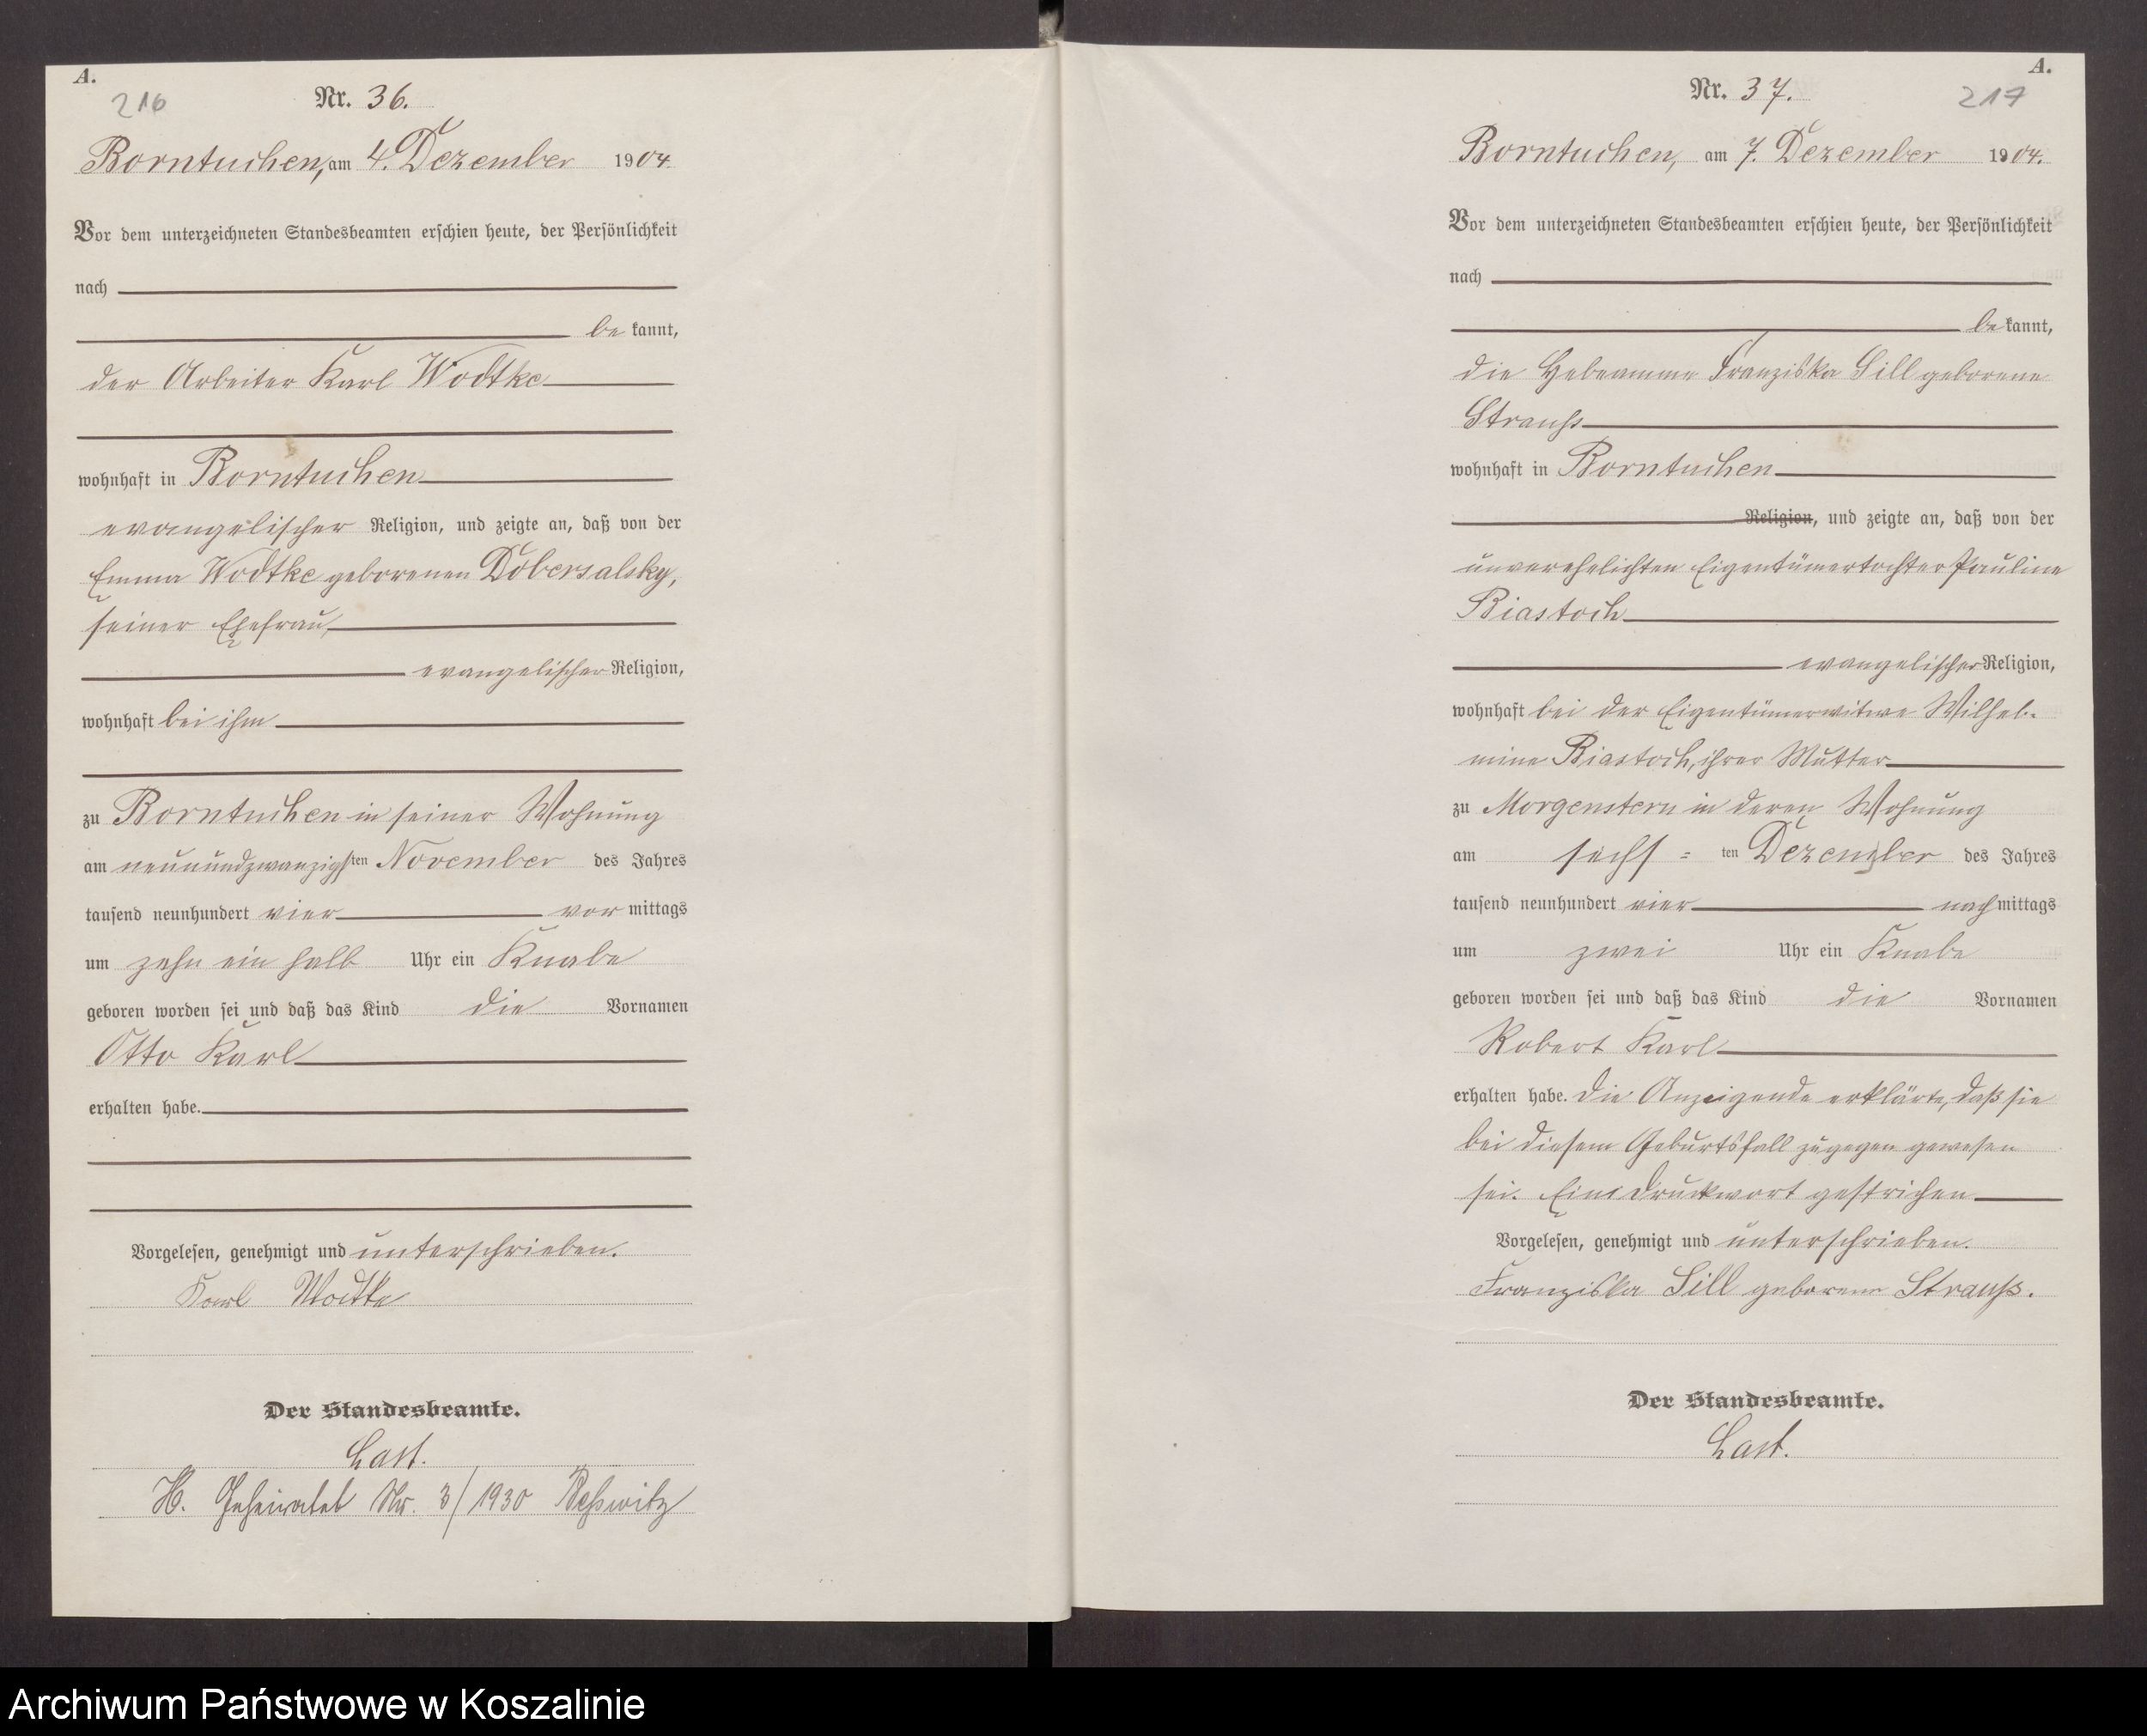 A.
216
Nr. 36.
Borntuchen, am 4. Dezember 1904.
Vor dem unterzeichneten Standesbeamten erschien heute, der Persönlichkeit
nach
be kannt,
der Arbeiter Karl Wodtke
wohnhaft in Borntuchen
evangelischer Religion, und zeigte an, daß von der
Emma Wodtke geborenen Dobersalsky,
seiner Ehefrau,
evangelischer Religion,
wohnhaft bei ihm
zu Borntuchen in seiner Wohnung
am neunundzwanzigsten November des Jahres
tausend neunhundert vier vor mittags
um zehn ein halb Uhr ein Knabe
geboren worden sei und daß das Kind die Vornamen
Otto Karl
erhalten habe.
Vorgelesen, genehmigt und unterschrieben.
Karl Wodtke
Der Standesbeamte.
Last.
H. Geheiratet Nr. 3/1930 Beßwitz
A.
217
Nr. 37.
Borntuchen, am 7. Dezember 1904.
Vor dem unterzeichneten Standesbeamten erschien heute, der Persönlichkeit
nach
be kannt,
die Hebeamme Franziska Sill geborene
Strauß
wohnhaft in Borntuchen
Religion, und zeigte an, daß von der
unverehelichten Eigentümertochter Pauline
Biastoch
evangelischer Religion,
wohnhaft bei der Eigentümerwitwe Wilhel-
mine Biastoch, ihrer Mutter
zu Morgenstern in deren Wohnung
am sechs = ten Dezember des Jahres
tausend neunhundert vier nach mittags
um zwei Uhr ein Knabe
geboren worden sei und daß das Kind die Vornamen
Robert Karl
erhalten habe. Die Anzeigende erklärte, daß sie
bei diesem Geburtsfall zugegen gewesen
sei. Ein Druckwort gestrichen
Vorgelesen, genehmigt und unterschrieben.
Franziska Sill geborene Strauß.
Der Standesbeamte.
Last.
Archiwum Państwowe w Koszalinie